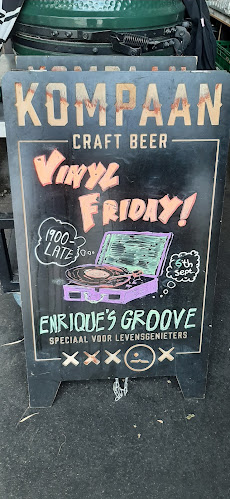 KOMPAAN
KOMPAAN
CRAFT BEER
VINYL
FRIDAY!
1900-
LATE
5th
Sept.
ENRIQUE'S GROOVE
SPECIAAL VOOR LEVENSGENIETERS